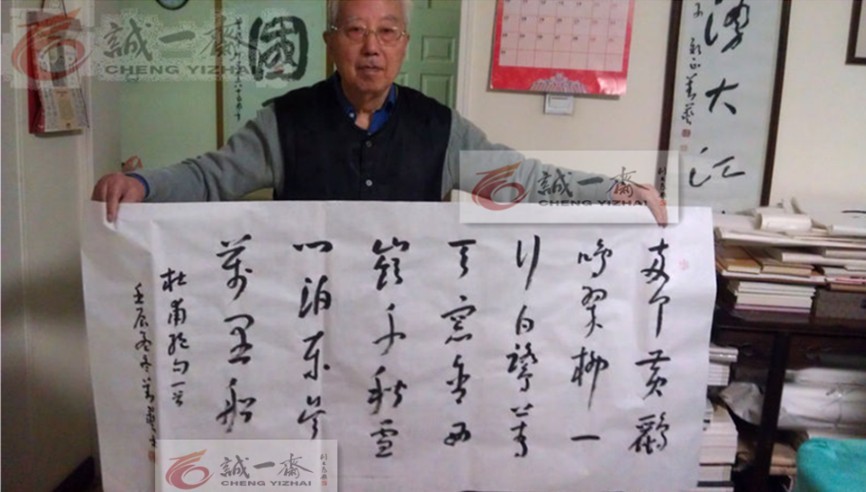 誠一齋
CHENG YIZHAI
國
大江
誠一齋
CHENG YIZHAI
两个黄鸝
鸣翠柳一
行白鷺上青
天窓含西
嶺千秋雪
门泊东吴
萬里船
杜甫绝句一首
壬辰孟冬
誠一齋
CHENG YIZHAI